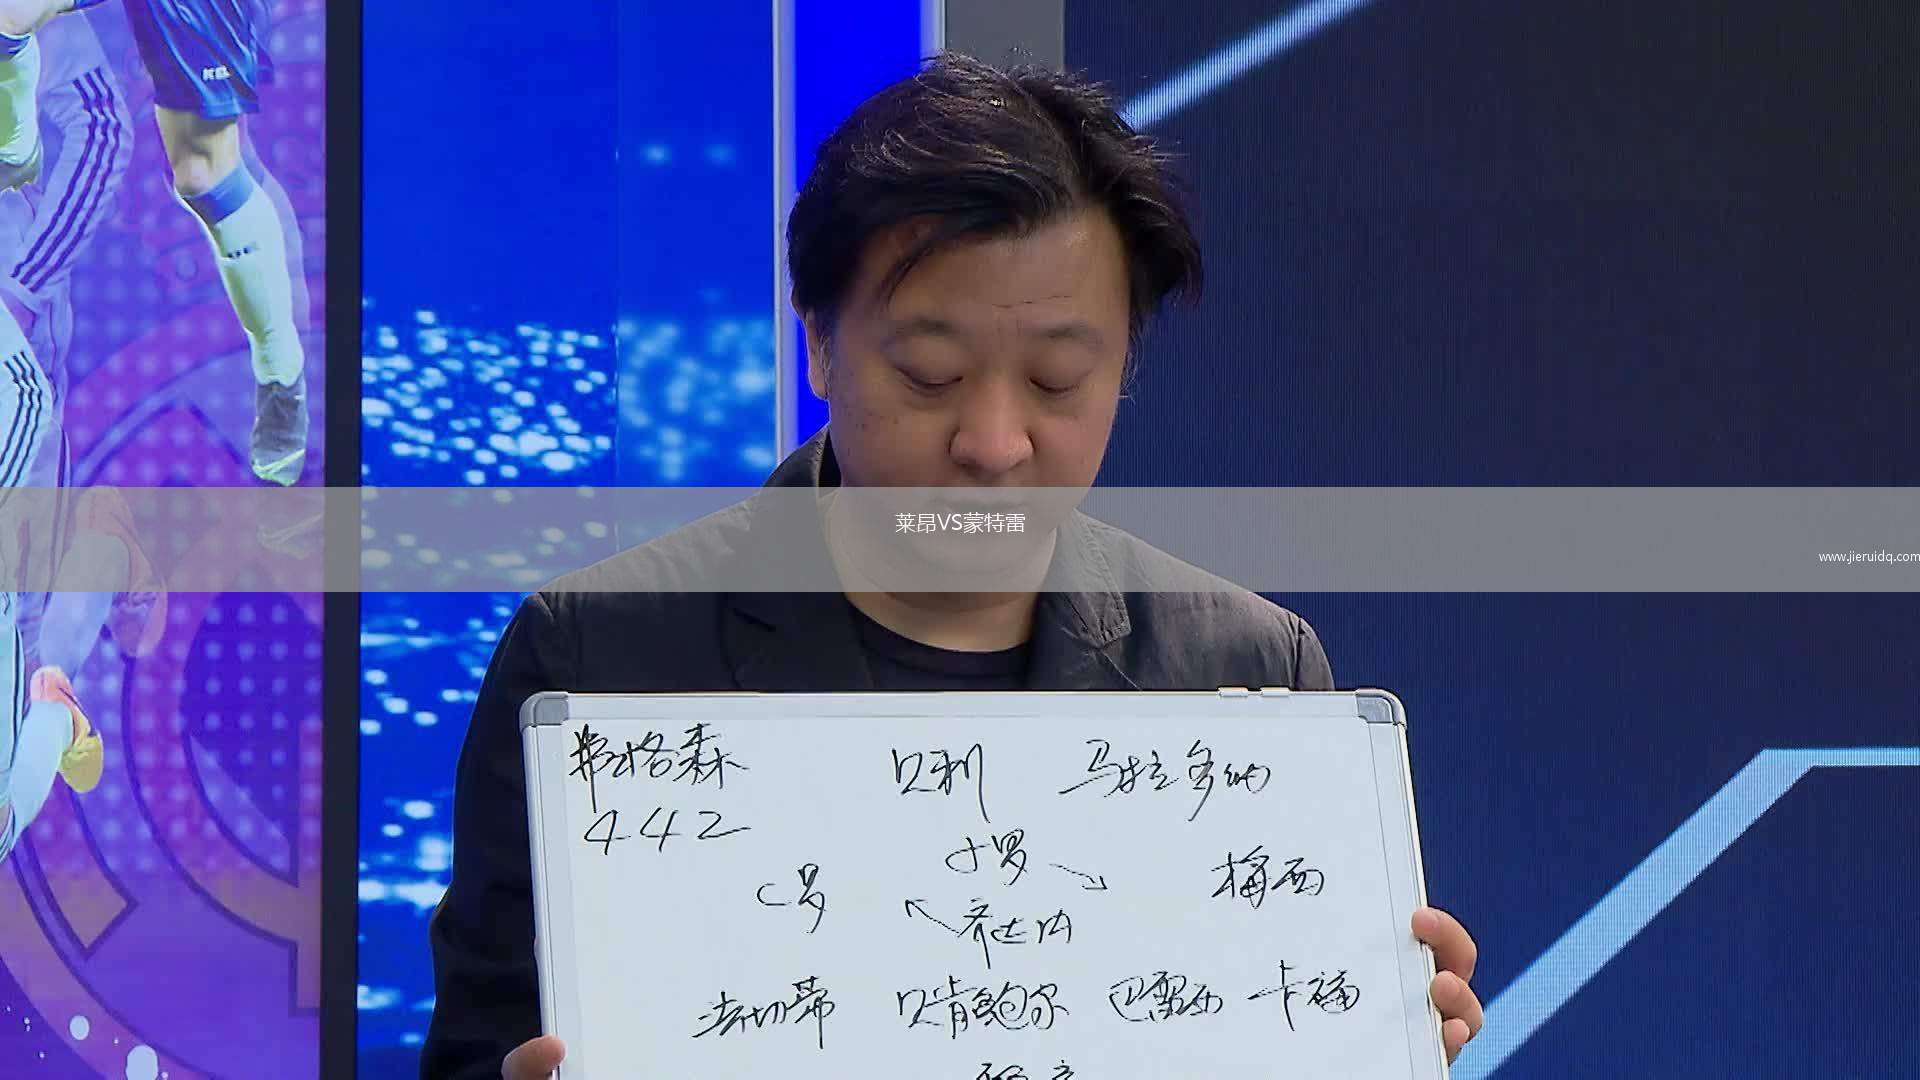 莱昂VS蒙特雷
www.jieruidq.com
弗格森 贝利 马拉多纳
442
小罗
C罗 梅西
齐达内
法切蒂 贝肯鲍尔 巴雷西 卡福